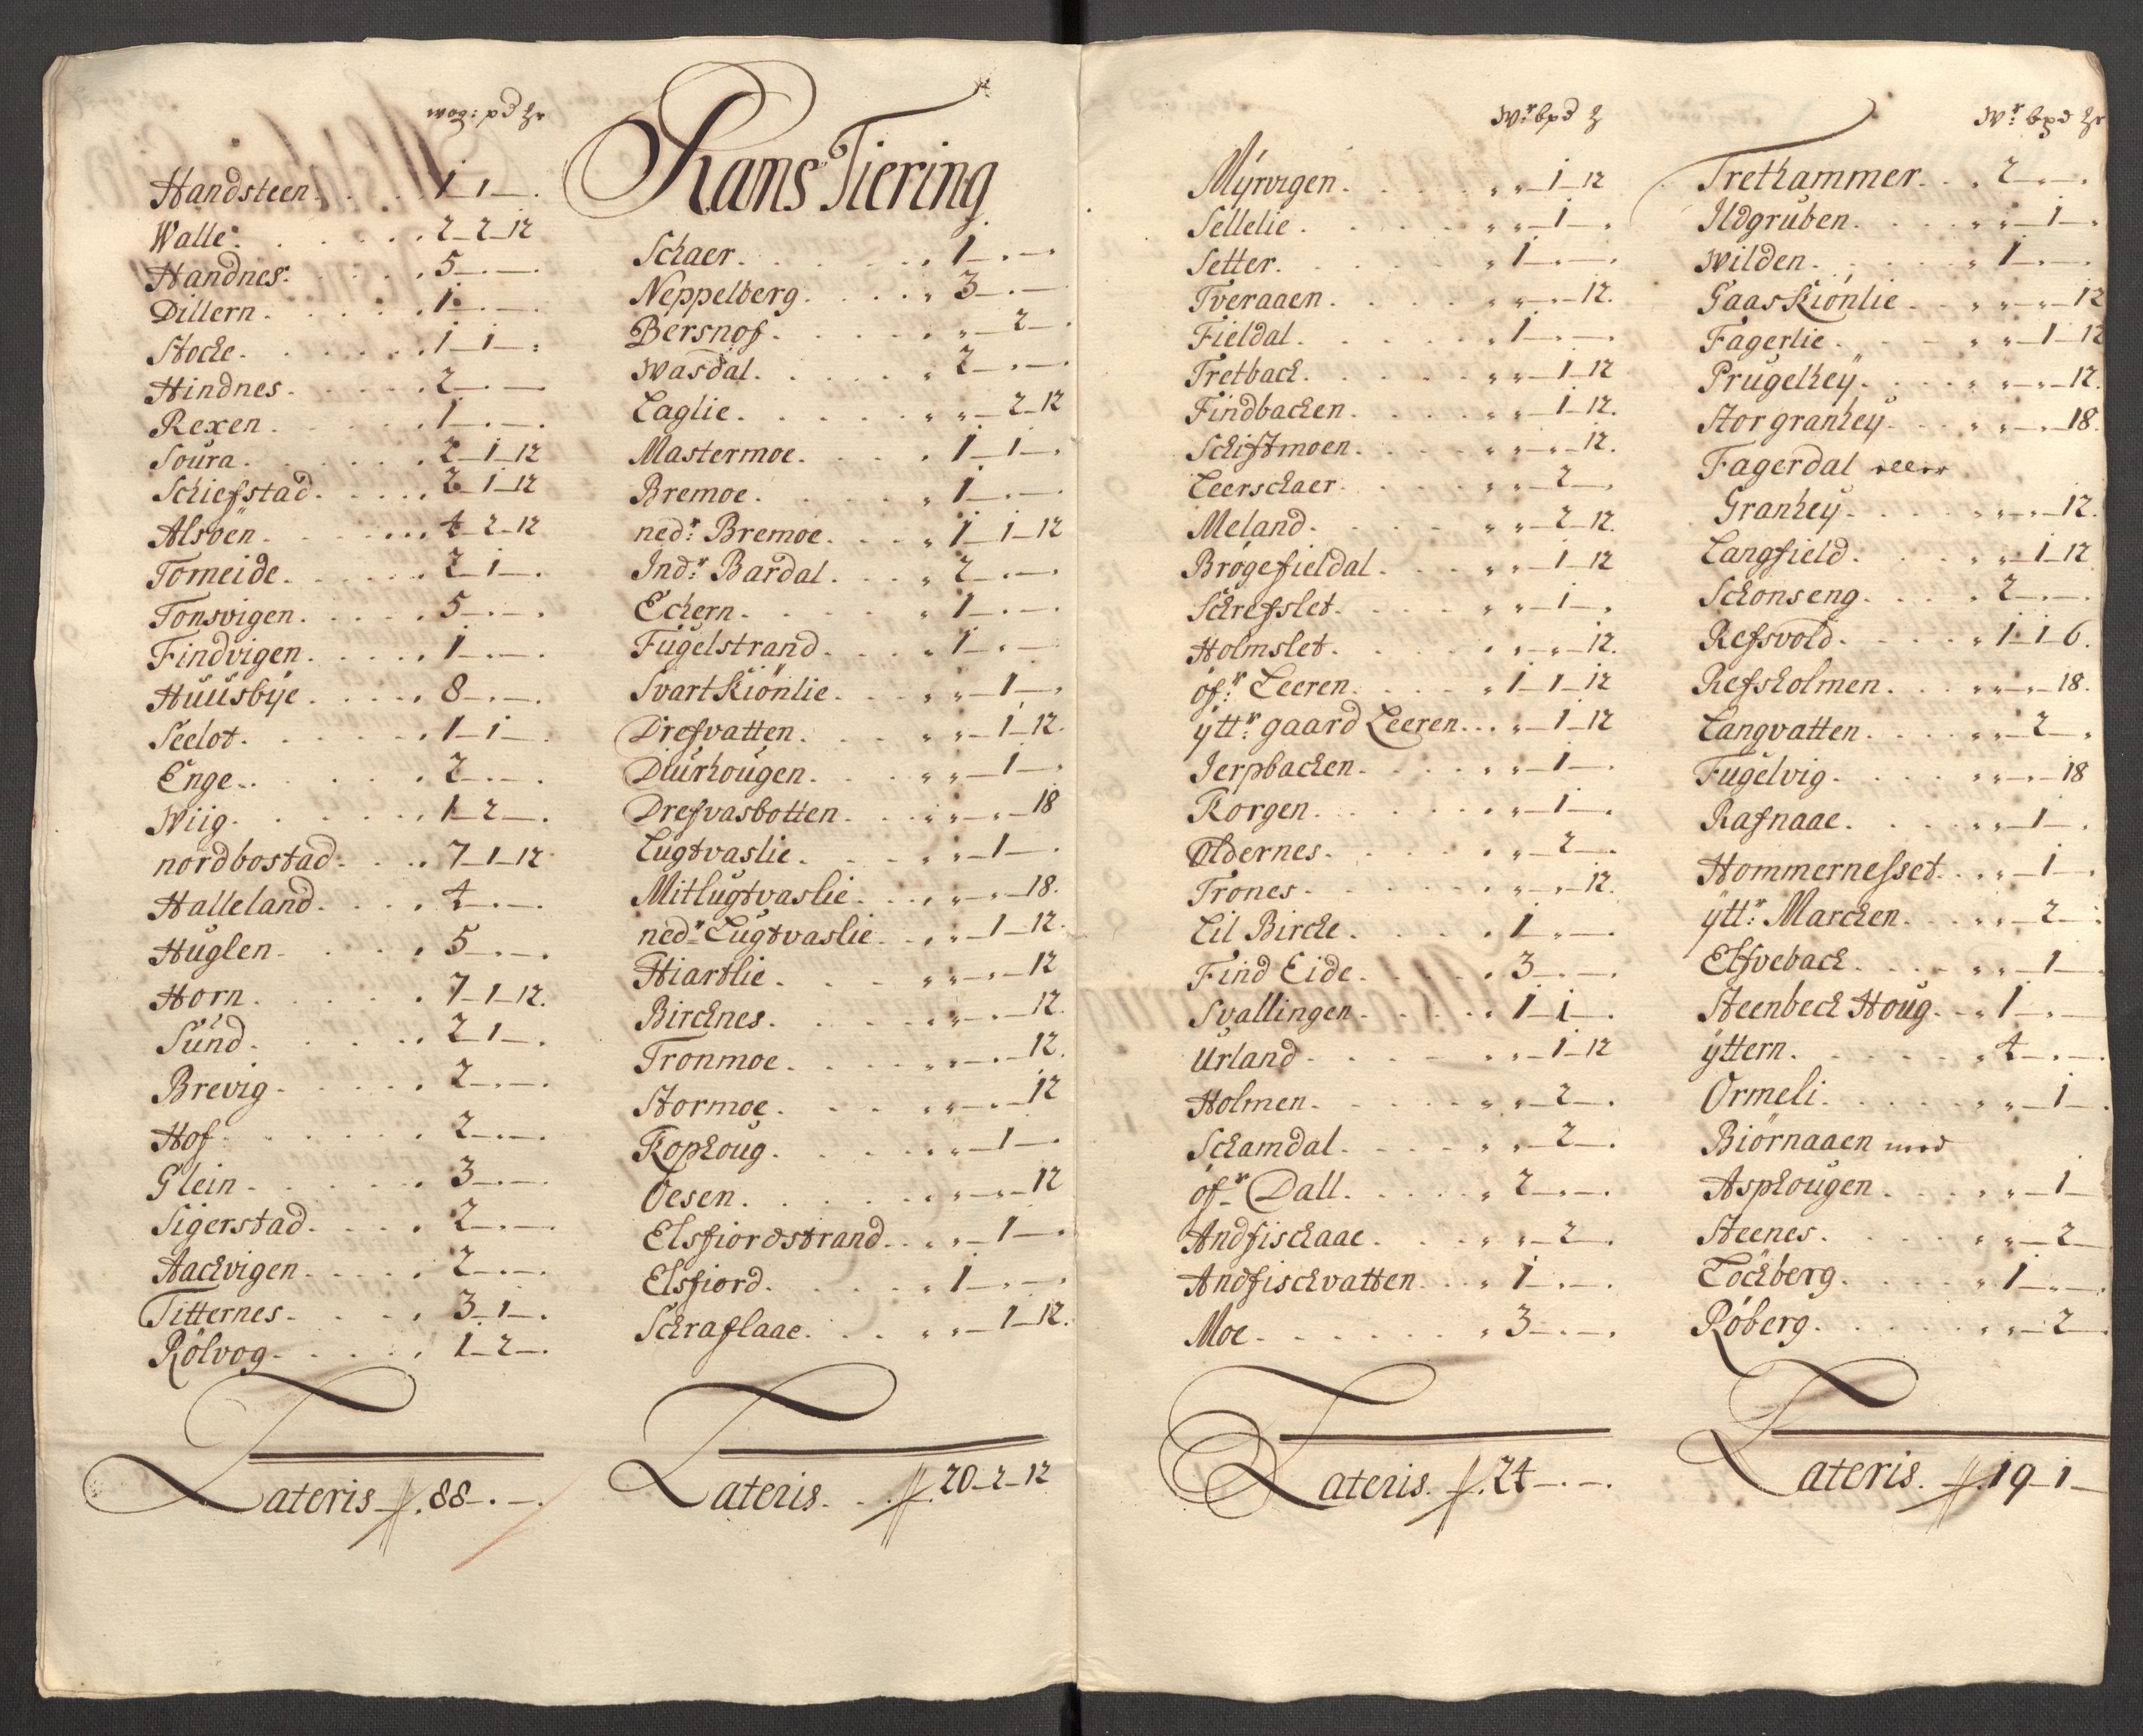 wog: pd
Handsteen. 1_1_.
Walle. 2_2_12
Handnes. 5_._.
Dillern. 1_._.
Stocke. 1_1_.
Hindnes. 2_._
Rexen. 1_._.
Soura. 2_1_12
Schiefstad. 2_1_12
Alsöen. 4_2_12
Tomeide. 2_1_.
Tonsvigen. 5_._.
Findvigen. 1_._.
Huusbÿe. 8_._.
Seelot. 1_1_
Enge. 2_._.
Wiig. 1_2_.
nordbostad. 7_1_12
Halleland. 4_._.
Huglen. 5_._.
Horn. 7_1_12.
Sund. 2_1_.
Brevig. 2_._.
Hof. 2_._.
Glein. 3_._.
Sigerstad. 2_._.
Aackvigen. 2_._.
Titternes. 3_1_.
Rölvog. 1_2_.
Lateris 88_._.
Rans Tiering
Schaer. 1_._.
Neppelberg. 3_._
Bersnos. 2_.
Wasdal. 2_._.
Laglie. 2_12
Mastermoe. 1_1_.
Bremoe. 1_._
nedr: Bremoe. 1_1_12
Indr: Bardal. 2_._.
Echern. 1_._.
Fugelstrand. 1_._
Svartkiönlie. 1_.
Drefvatten. 1_12.
Diurhougen. 1_.
Drefvasbotten. 18
Lugtvaslie. 1_.
Mitlugtvaslie. 18.
nedr Lugtvaslie. 1_12.
Hiartlie. 12
Bircknes. 12.
Tronmoe. 12.
Stormoe. 12
Kophoug. 1_.
Oesen. 12
Elsfiordstrand. 1_.
Elsfiord. 1_._.
Schraflaae. 1_12.
Lateris. 20_2_12
Wr: bpd
Mÿrvigen. 1_12
Sellelie. 1_.
Setter. 1_._.
Tveraaen. 12.
Fieldal. 1_._.
Tretback. 1_12
Findbacken. 1_12.
Schiftmoen. 12.
Leerschaer. 2_.
Meland. 2_12.
Brøgefieldal. 1_12
Schrefslet. 1_.
Holmslet. 12.
öfr: Leeren. 1_1_12
ÿttr: gaard Leeren. 1_12
Jerpbacken. 1_.
Korgen. 1_.
Oldernes. 2_.
Trones. 12.
Lil Bircke. 1_._
Find Eide. 3_._.
Svallingen. 1_1_.
Urland. 1_12
Holmen. 2_.
Schamdal. 2_.
öfr Dall. 2_._.
Andfischaae. 2_.
Andfischvatten. 1_._.
Moe. 3_._.
Lateris. 24_._.
Wr: bpd
Trethammer. 2_._.
Ildgruben. 1_.
Wilden. 1_._.
Gaaskiönlie. 12
Fagerlie. 1_12
Prugelheÿ. 12.
Storgranheÿ. 18.
Fagerdal eller
Granheÿ. 12.
Langfield. 1_12
Schonseng. 2_._.
Refsvold. 1_1_6.
Refsholmen. 18.
Langvatten. 2_.
Fugelvig. 18
Rafnaae. 1_.
Hommernesset. 1_.
ÿttr: Marcken. 2_.
Elfveback. 1_
Steenbeck Houg. 1_._
ÿttern. 4_._.
Ormeli. 1_.
Biörnaaen med
Asphougen. 1_
Steenes. 2_
Löckberg. 1_._.
Röberg. 2_.
Lateris. 19_1_